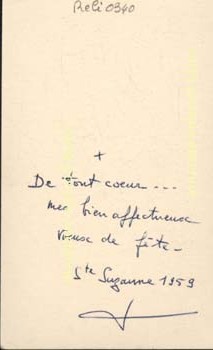 Reli 0340
+
De tout coeur...
mes bien affectueux
voeux de fête -
Ste Suzanne 1959